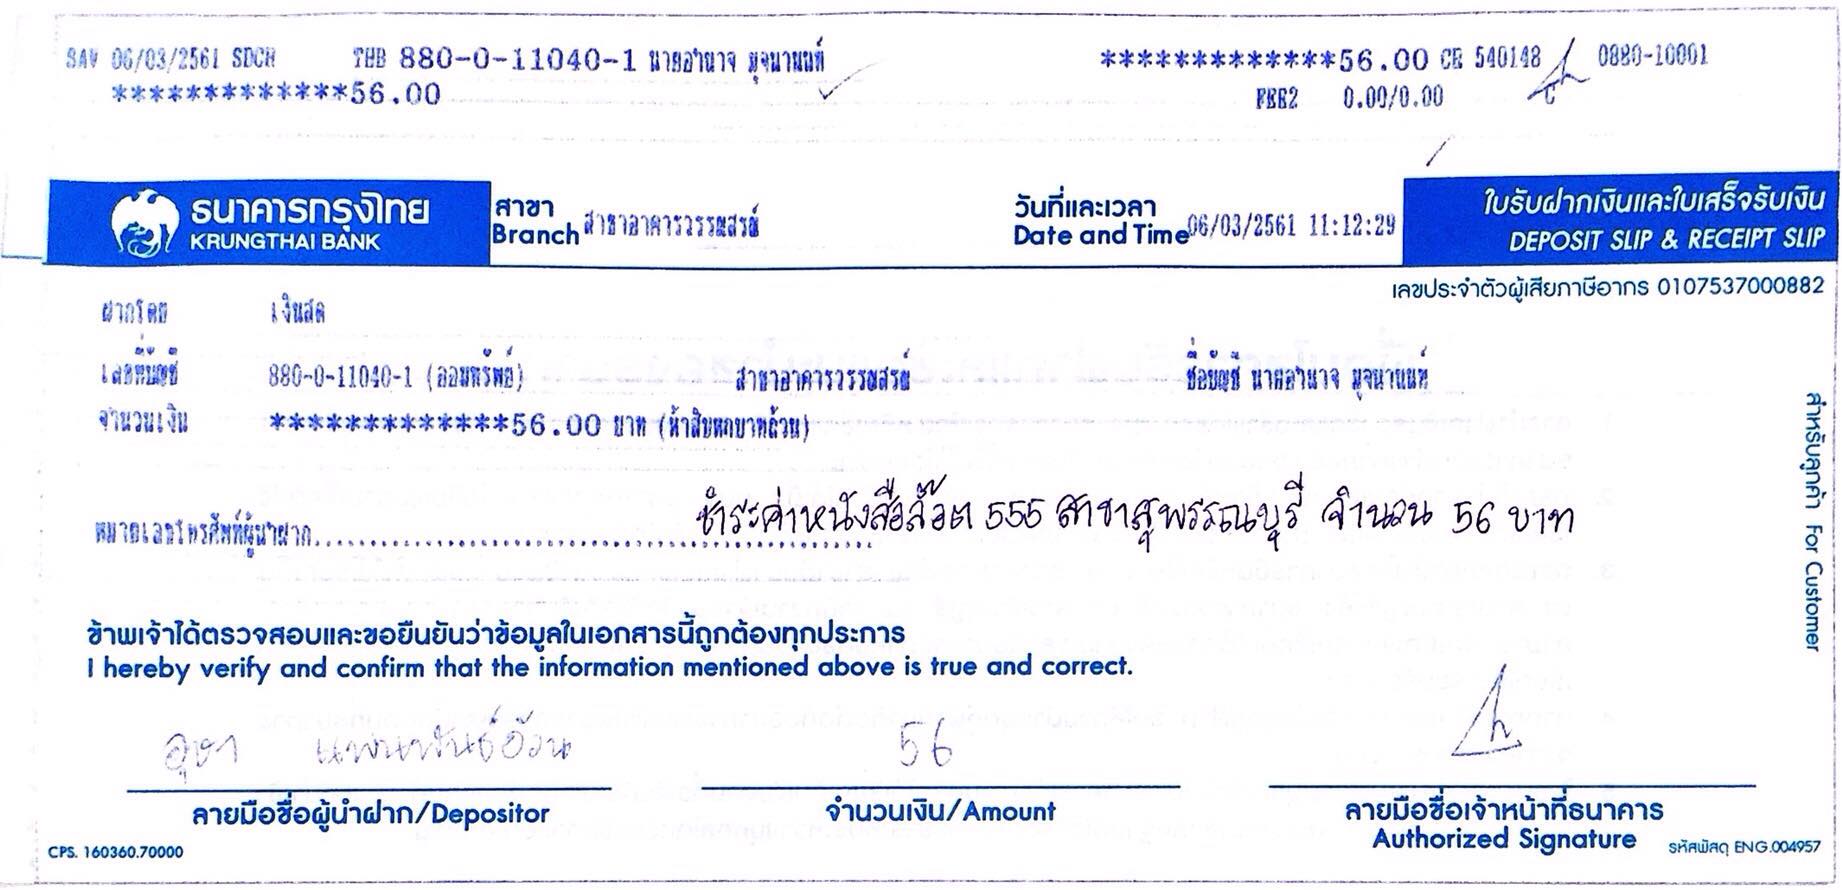 SAV 06/03/2561 SDCH THB 880-0-11040-1 นายอำนาจ มุจนานนท์ *************56.00 CR 540148 0880-10001
*************56.00 FEE2 0.00/0.00
ธนาคารกรุงไทย
KRUNGTHAI BANK
สาขา
Branch สาขาอาคารวรรณสรณ์
วันที่และเวลา
Date and Time 06/03/2561 11:12:29
ใบรับฝากเงินและใบเสร็จรับเงิน
DEPOSIT SLIP & RECEIPT SLIP
เลขประจำตัวผู้เสียภาษีอากร 0107537000882
ฝากโดย เงินสด
เลขที่บัญชี 880-0-11040-1 (ออมทรัพย์) สาขาอาคารวรรณสรณ์ ชื่อบัญชี นายอำนาจ มุจนานนท์
จำนวนเงิน *************56.00 บาท (ห้าสิบหกบาทถ้วน)
ชำระค่าหนังสือล็อต 555 สาขาสุพรรณบุรี จำนวน 56 บาท
หมายเลขโทรศัพท์ผู้นำฝาก
สำหรับลูกค้า For Customer
ข้าพเจ้าได้ตรวจสอบและขอยืนยันว่าข้อมูลในเอกสารนี้ถูกต้องทุกประการ
I hereby verify and confirm that the information mentioned above is true and correct.
อุษา 56
ลายมือชื่อผู้นำฝาก/Depositor จำนวนเงิน/Amount ลายมือชื่อเจ้าหน้าที่ธนาคาร
Authorized Signature
CPS. 160360.70000 รหัสพัสดุ ENG.004957